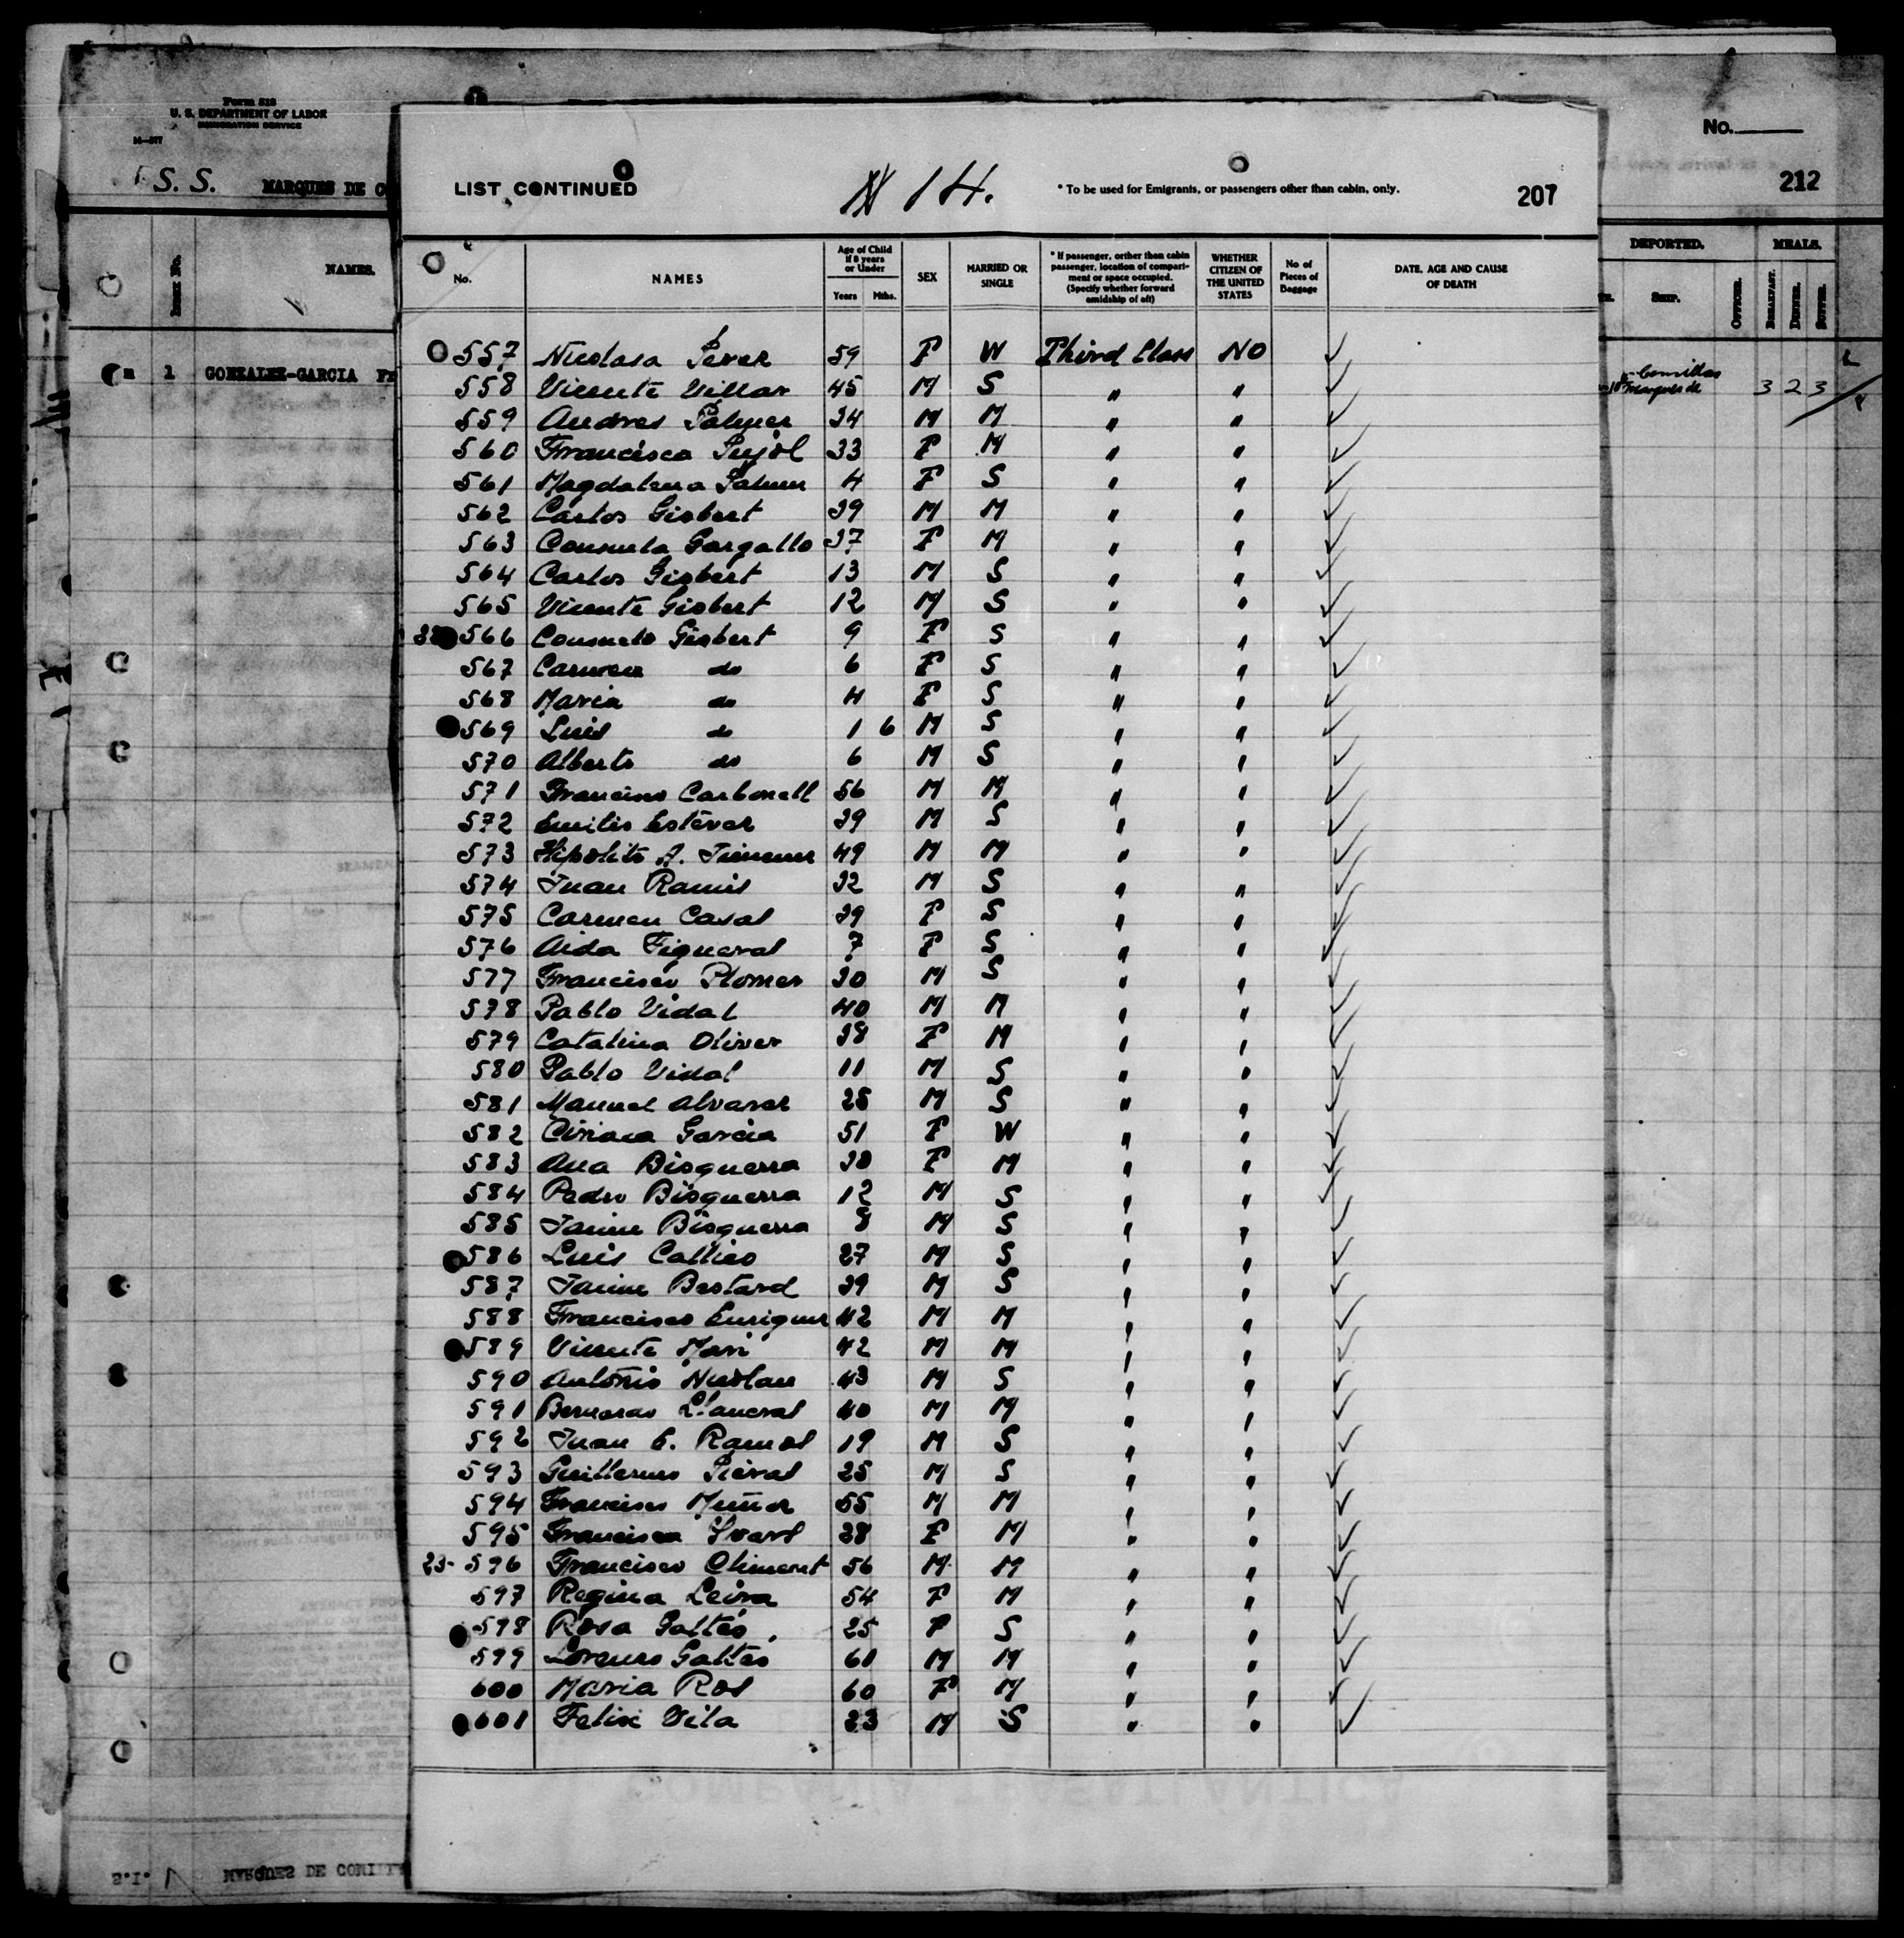 Form 518
U. S. DEPARTMENT OF LABOR
IMMIGRATION SERVICE
S. S. MARQUES DE C
NAMES.
1 GONZALEZ-GARCIA
No.
212
DEPORTED. MEALS.
SHIP. OFFICER. BREAKFAST. DINNER. SUPPER.
Comillas
Marques de 3 2 3
LIST CONTINUED 14. * To be used for Emigrants, or passengers other than cabin, only. 207
No. NAMES Age of Child if 8 years or Under Years Mths. SEX MARRIED OR SINGLE * If passenger, orther than cabin passenger, location of compartment or space occupied. (Specify whether forward amidship of aft) WHETHER CITIZEN OF THE UNITED STATES No of Pieces of Baggage DATE, AGE AND CAUSE OF DEATH
557 Nicolasa 59 F W Third Class NO ✓
558 Vicente Villar 45 M S " " ✓
559 Andres Palmer 34 M M " " ✓
560 Francisca Pujol 33 F M " " ✓
561 Magdalena Palmer 4 F S " " ✓
562 Carlos Gisbert 39 M M " " ✓
563 Consuelo Gargallo 37 F M " " ✓
564 Carlos Gisbert 13 M S " " ✓
565 Vicente Gisbert 12 M S " " ✓
566 Consuelo Gisbert 9 F S " " ✓
567 Carmen do 6 F S " " ✓
568 Maria do 4 F S " " ✓
569 Luis do 1 6 M S " " ✓
570 Alberto do 6 M S " " ✓
571 Francisco Carbonell 56 M M " " ✓
572 Emilio Estévez 39 M S " " ✓
573 Hipolito A. Jimenez 49 M M " " ✓
574 Juan Ramis 32 M S " " ✓
575 Carmen Casal 39 F S " " ✓
576 Aida Figueral 7 F S " " ✓
577 Francisco Plomer 30 M S " " ✓
578 Pablo Vidal 40 M M " " ✓
579 Catalina Oliver 38 F M " " ✓
580 Pablo Vidal 11 M S " " ✓
581 Manuel Alvarez 25 M S " " ✓
582 Ciriaca Garcia 51 F W " " ✓
583 Ana Bisquerra 30 F M " " ✓
584 Pedro Bisquerra 12 M S " " ✓
585 Jaime Bisquerra 8 M S " " ✓
586 Luis 27 M S " " ✓
587 Jaime Bestard 39 M S " " ✓
588 Francisco Enriquez 42 M M " " ✓
589 Vicente Mari 42 M M " " ✓
590 Antonio Nicolau 43 M S " " ✓
591 Bernardo 40 M M " " ✓
592 Juan Ramos 19 M S " " ✓
593 Guillermo 25 M S " " ✓
594 Francisco Muñoz 55 M M " " ✓
595 Francisca 38 F M " " ✓
23- 596 Francisco Climent 56 M M " " ✓
597 Regina Leiva 54 F M " " ✓
598 Rosa Galtés 25 F S " " ✓
599 Lorenzo Galtés 61 M M " " ✓
600 Maria Ros 60 F M " " ✓
601 Felix Vila 23 M S " " ✓